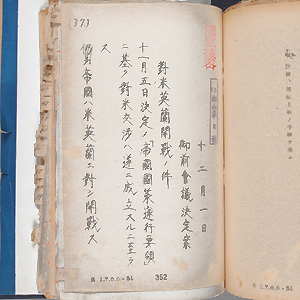 (37)
十二月一日
御前會議決定案
對米英蘭開戰ノ件
十一月五日決定ノ「帝國國策遂行要領
ニ基ク對米交渉ハ遂ニ成立スルニ至ラ
ス
帝國ハ米英蘭ニ對シ開戰ス
S 1.7.0.0.-51
352
S 1.7.0.0-51